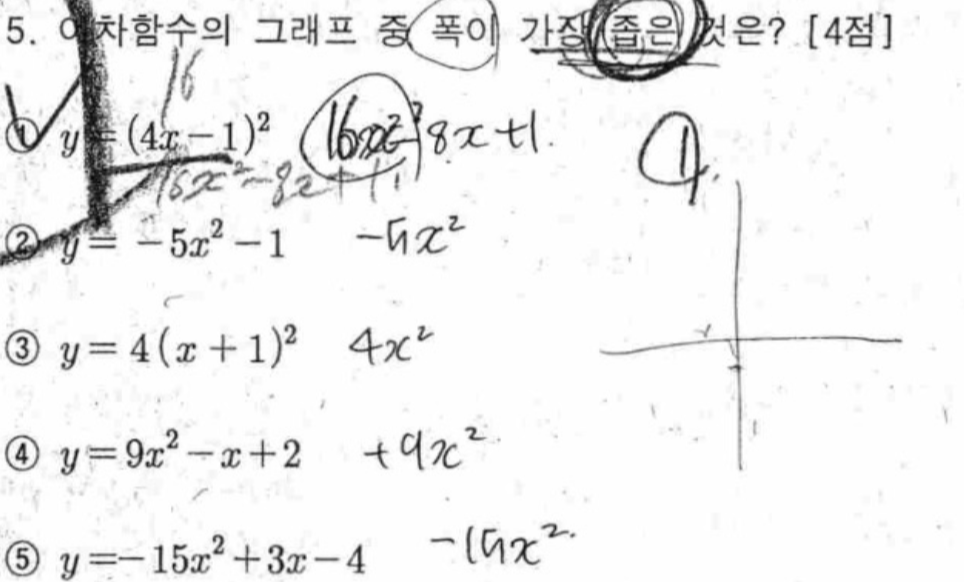 5. 이차함수의 그래프 중 폭이 가장 좁은 것은? [4점]
16
① y = (4x - 1)² 16x² - 8x + 1. ①.
16x² - 8x + 1
② y = -5x² - 1 -5x²
③ y = 4(x + 1)² 4x²
④ y = 9x² - x + 2 +9x²
⑤ y = -15x² + 3x - 4 -15x²